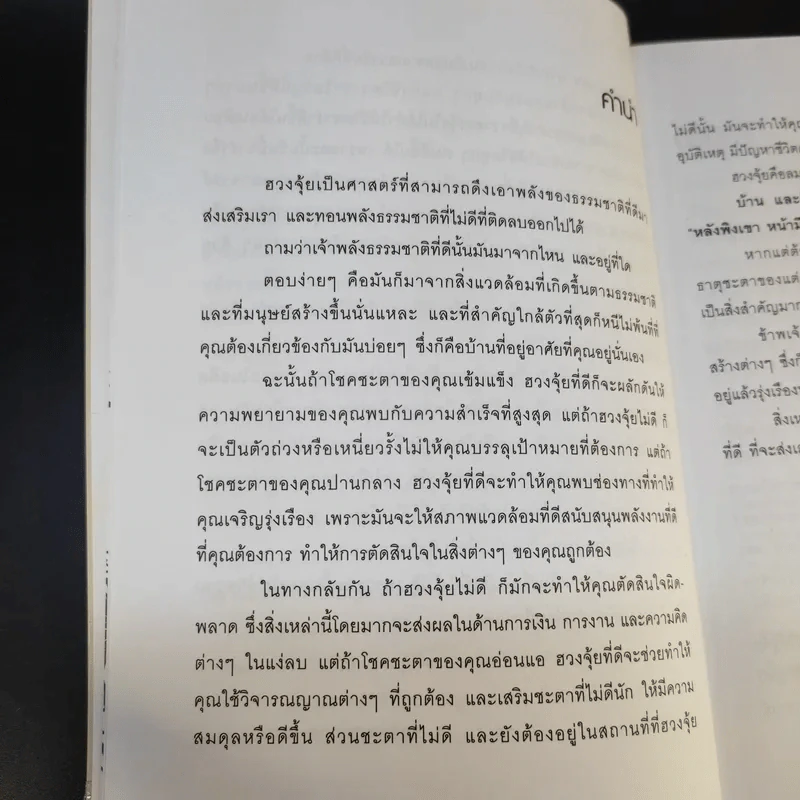 คำนำ
ฮวงจุ้ยเป็นศาสตร์ที่สามารถดึงเอาพลังของธรรมชาติที่ดีมา
ส่งเสริมเรา และทอนพลังธรรมชาติที่ไม่ดีที่ติดลบออกไปได้
ถามว่าเจ้าพลังธรรมชาติที่ดีนั้นมันมาจากไหน และอยู่ที่ใด
ตอบง่ายๆ คือมันก็มาจากสิ่งแวดล้อมที่เกิดขึ้นตามธรรมชาติ
และที่มนุษย์สร้างขึ้นนั่นแหละ และที่สำคัญใกล้ตัวที่สุดก็หนีไม่พ้นที่ที่
คุณต้องเกี่ยวข้องกับมันบ่อยๆ ซึ่งก็คือบ้านที่อยู่อาศัยที่คุณอยู่นั่นเอง
ฉะนั้นถ้าโชคชะตาของคุณเข้มแข็ง ฮวงจุ้ยที่ดีก็จะผลักดันให้
ความพยายามของคุณพบกับความสำเร็จที่สูงสุด แต่ถ้าฮวงจุ้ยไม่ดี ก็
จะเป็นตัวถ่วงหรือเหนี่ยวรั้งไม่ให้คุณบรรลุเป้าหมายที่ต้องการ แต่ถ้า
โชคชะตาของคุณปานกลาง ฮวงจุ้ยที่ดีจะทำให้คุณพบช่องทางที่ทำให้
คุณเจริญรุ่งเรือง เพราะมันจะให้สภาพแวดล้อมที่ดีสนับสนุนพลังงานที่ดี
ที่คุณต้องการ ทำให้การตัดสินใจในสิ่งต่างๆ ของคุณถูกต้อง
ในทางกลับกัน ถ้าฮวงจุ้ยไม่ดี ก็มักจะทำให้คุณตัดสินใจผิด-
พลาด ซึ่งสิ่งเหล่านี้โดยมากจะส่งผลในด้านการเงิน การงาน และความคิด
ต่างๆ ในแง่ลบ แต่ถ้าโชคชะตาของคุณอ่อนแอ ฮวงจุ้ยที่ดีจะช่วยทำให้
คุณใช้วิจารณญาณต่างๆ ที่ถูกต้อง และเสริมชะตาที่ไม่ดีนัก ให้มีความ
สมดุลหรือดีขึ้น ส่วนชะตาที่ไม่ดี และยังต้องอยู่ในสถานที่ที่ฮวงจุ้ย
ไม่ดีนั้น มันจะทำให้คุณ
อุบัติเหตุ มีปัญหาชีวิต
ฮวงจุ้ยคือลม
บ้าน และ
"หลังพิงเขา หน้ามี
หากแต่ต้
ธาตุชะตาของแต่
เป็นสิ่งสำคัญมาก
ข้าพเจ้
สร้างต่างๆ ซึ่งก็
อยู่แล้วรุ่งเรือง
สิ่งเห
ที่ดี ที่จะส่งเส